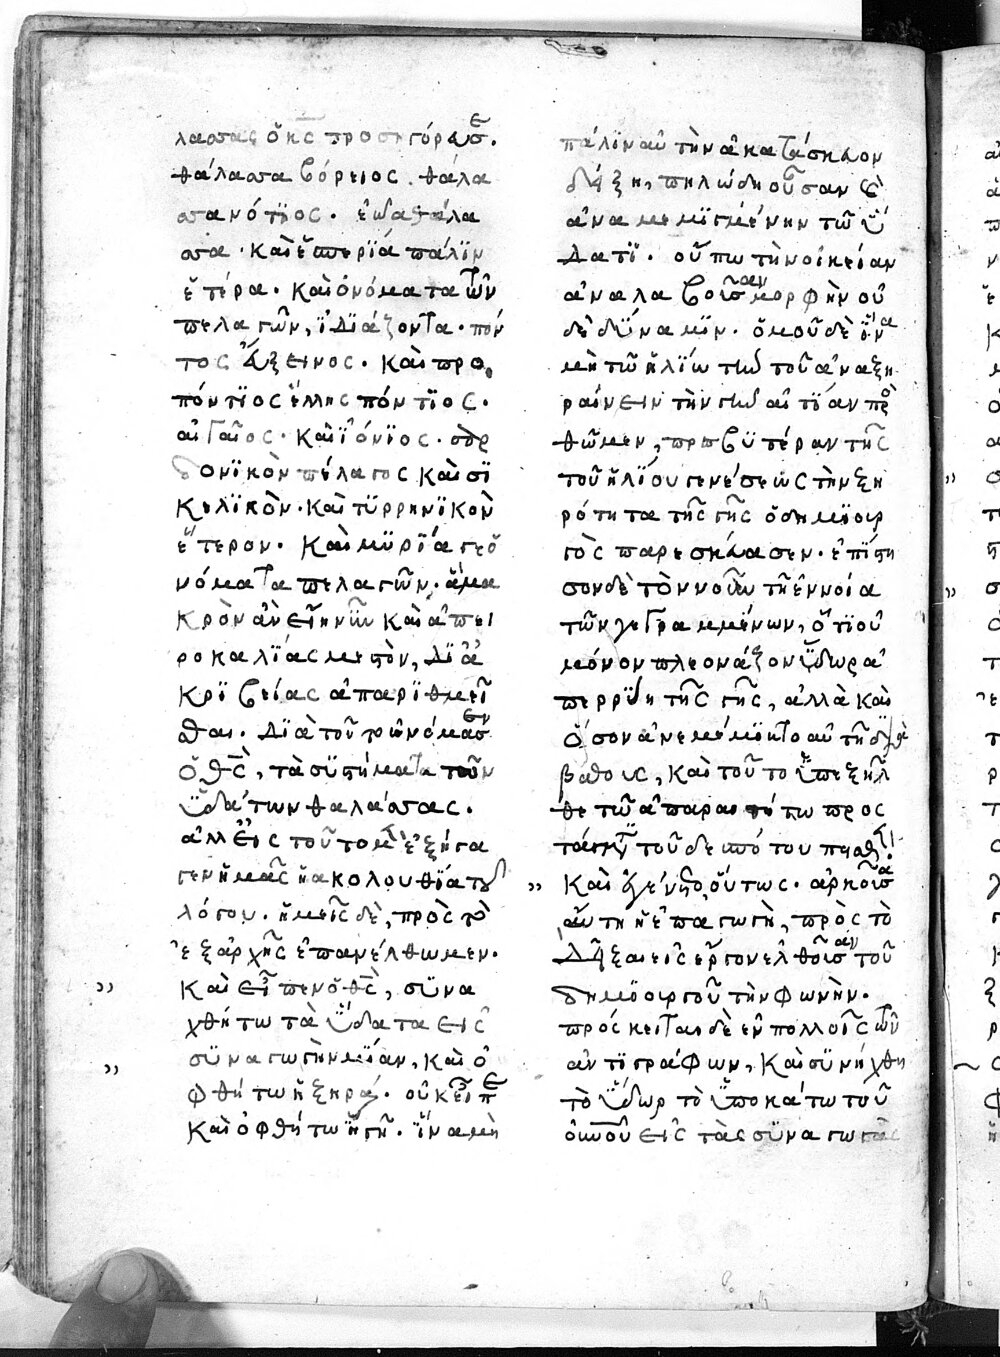 λασσας ὁ θς προσηγόρευσε.
θάλασσα βόρειος. θάλα
σσα νότϊος. ἑώα θάλα
σσα. καὶ ἑσπερϊα πάλϊν
ἑτέρα. καὶ ὀνόματα τῶν
πελαγῶν, ϊδϊάζοντα. πόν
τος Ἄξεινος. καὶ προ
πόντϊος ἕλλης πόντϊος.
αἰγαῖος. καὶ ϊόνϊος. σαρ
δονϊκὸν πέλαγος καὶ σϊ
κελϊκὸν. καὶ τϋρρηνϊκὸν
ἕτερον. καὶ μϋρϊα γε ὀ
νόματα πελαγῶν. ἃ μα
κρὸν ἂν εἴη νῦν καὶ ἀπει
ροκαλϊας μεστὸν, δϊ ἀ
κρϊβείας ἀπαρϊθμεῖ
σθαι. δϊὰ τοῦτο ὠνόμασεν
ὁ θς, τὰ σϋστήματα τῶν
ϋδάτων θαλάσσας.
ἀλλ εἰς τοῦτο μὲν ἐξήγα
γεν ἡμᾶς ἡ ἀκολουθϊα τοῦ
λόγου. ἡμεῖς δὲ, πρὸς τὸ
ἐξαρχῆς ἐπανέλθωμεν.
καὶ εἶπεν ὁ θς, σϋνα
χθήτω τὰ ϋδατα εἰς
σϋναγωγὴν μϊαν, καὶ ὀ
φθήτω ἡ ξηρά. οὐκ εἶπε
καὶ ὀφθήτω ἡ γῆ. ἵνα μὴ
πάλϊν αὐτὴν ἀκατάσκευον
δείξη, πηλώδη οὖσαν καὶ
ἀναμεμϊγμένην τῶ ϋ
δατϊ. οὔπω τὴν οἰκείαν
ἀναλαβοῦσαν μορφὴν οὐ
δὲ δϋναμϊν. ὁμοῦ δὲ ἵνα
μὴ τῶ ἡλϊω τὴν τοῦ ἀναξη
ραίνειν τὴν γῆν αἰτϊαν προσ
θῶμεν, πρεσβϋτέραν τῆς
τοῦ ἡλϊου γενέσεως τὴν ξη
ρότητα τῆς γῆς ὁ δημϊουρ
γὸς παρεσκεύασεν. ἐπϊστη
σον δὲ τὸν νοῦν τῆ ἐννοία
τῶν γεγραμμένων, ὅτϊ οὐ
μόνον πλεονάζον ϋδωρ ἀ
περρϋη τῆς γῆς, ἀλλὰ καὶ
ὅσον ἀνεμέμϊκτο αὐτῆ διὰ
βάθους, καὶ τοῦτο ϋπεξῆλ
θε τῶ ἀπαραιτήτω προς
τάγματι τοῦ δεσπότου πεισθέν.
καὶ ἐγένετο οὕτως. ἀρκοῦσα
αὕτη ἡ ἐπαγωγὴ, πρὸς τὸ
δεῖξαι εἰς ἔργον ἐλθοῦσαν τοῦ
δημϊουργοῦ τὴν φωνὴν.
πρόσκειται δὲ ἐν πολλοῖς τῶν
ἀντϊγράφων, καὶ σϋνήχθη
τὸ ϋδωρ τὸ ϋποκάτω τοῦ
οὐνοῦ εἰς τὰς σϋναγωγὰς